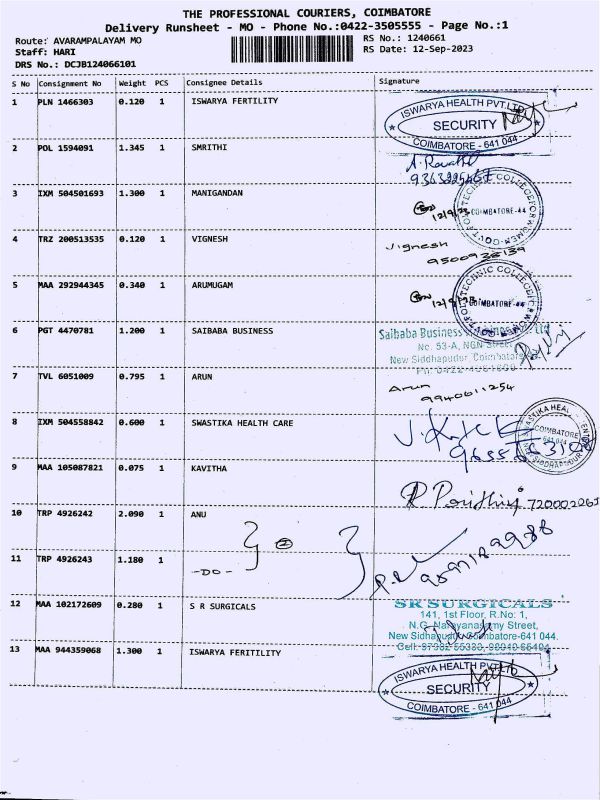 THE PROFESSIONAL COURIERS, COIMBATORE
Delivery Runsheet - MO - Phone No.:0422-3505555 - Page No.:1
Route: AVARAMPALAYAM MO
RS No.: 1240661
Staff: HARI
RS Date: 12-Sep-2023
DRS No.: DCJB124066101
S No Consignment No Weight PCS Consignee Details Signature
1 PLN 1466303 0.120 1 ISWARYA FERTILITY
ISWARYA HEALTH PVT.LTD
SECURITY
COIMBATORE - 641 044
2 POL 1594091 1.345 1 SMRITHI
3 IXM 504501693 1.300 1 MANIGANDAN
12/9/23
COIMBATORE-44
4 TRZ 200513535 0.120 1 VIGNESH
Vignesh
5 MAA 292944345 0.340 1 ARUMUGAM
COIMBATORE-44
6 PGT 4470781 1.200 1 SAIBABA BUSINESS
Saibaba Business
No. 53-A, NGN Street
New Siddhapudur, Coimbatore
7 TVL 6051009 0.795 1 ARUN
Arun
9940611254
8 IXM 504558842 0.600 1 SWASTIKA HEALTH CARE
COIMBATORE
641 044
9 MAA 105087821 0.075 1 KAVITHA
10 TRP 4926242 2.090 1 ANU
2
11 TRP 4926243 1.180 1 -DO-
12 MAA 102172609 0.280 1 S R SURGICALS
SR SURGICALS
141, 1st Floor, R.No: 1,
N.G. Narayanasamy Street,
New Sidhapudur, Coimbatore-641 044.
13 MAA 944359068 1.300 1 ISWARYA FERITILITY
ISWARYA HEALTH PVT.LTD
SECURITY
COIMBATORE - 641 044